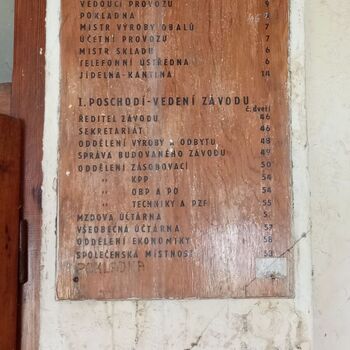 VEDOUCÍ PROVOZU 9
POKLADNA 7
MISTR VÝROBY OBALŮ 7
ÚČETNÍ PROVOZU 7
MISTR SKLADU 6
TELEFONNÍ ÚSTŘEDNA 6
JÍDELNA-KANTINA 14
I. POSCHODÍ-VEDENÍ ZÁVODU
č. dveří
ŘEDITEL ZÁVODU 46
SEKRETARIÁT 46
ODDĚLENÍ VÝROBY A ODBYTU 48
SPRÁVA BUDOVANÉHO ZÁVODU 49
ODDĚLENÍ ZÁSOBOVACÍ 50
" KPP 54
" OBP A PO 54
" TECHNIKY A PZF 55
MZDOVÁ ÚČTÁRNA
VŠEOBECNÁ ÚČTÁRNA 57
ODDĚLENÍ EKONOMIKY 58
SPOLEČENSKÁ MÍSTNOST 53
POKLADNA